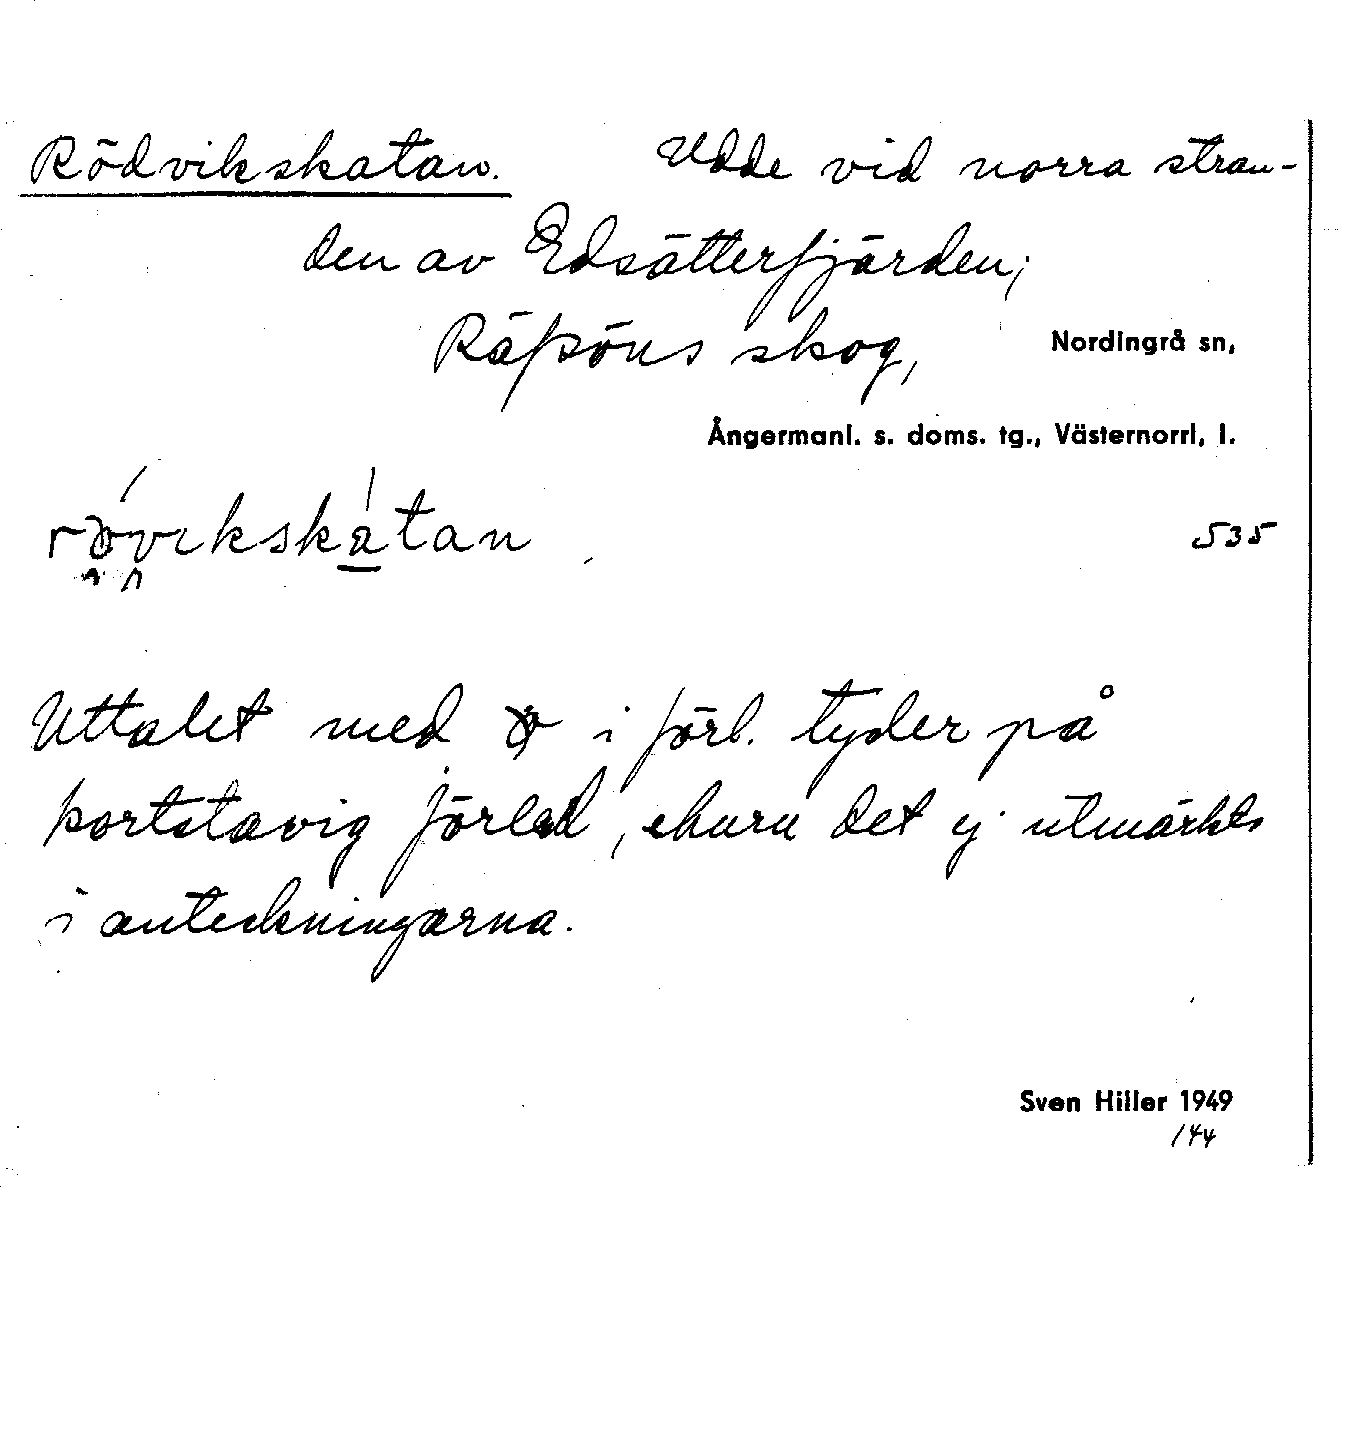 Rödvikskatan. Udde vid norra stran-
den av Edsätterfjärden;
Räfsöns skog, Nordingrå sn,
Ångermanl. s. doms. tg., Västernorrl, l.
535
Uttalet med i förl. tyder på
kortstavig förled, ehuru det ej utmärkts
i anteckningarna.
Sven Hiller 1949
144